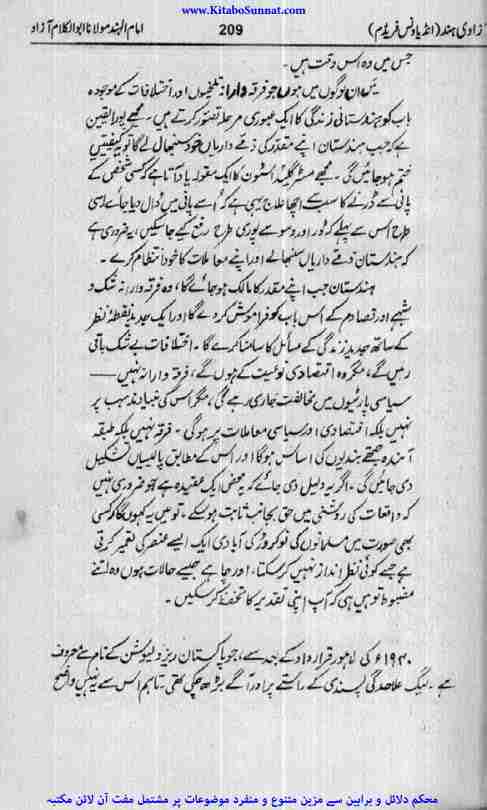 www.KitaboSunnat.com
آزادی ہند (انڈیا ونس فریڈم) 209 امام الہند مولانا ابوالکلام آزاد
جس میں وہ اس وقت ہیں۔
میں ان لوگوں میں ہوں جو فرقہ وارانہ تلخیوں اور اختلافات کے موجودہ
باب کو ہندستانی زندگی کا ایک عبوری مرحلہ تصور کرتے ہیں۔ مجھے پورا یقین
ہے کہ جب ہندستان اپنے مقدر کی ذمے داریاں خود سنبھال لے گا تو یہ کیفیتیں
ختم ہو جائیں گی۔ مجھے مسٹر گلیڈ اسٹون کا ایک مقولہ یاد آتا ہے کہ کسی شخص کے
پانی سے ڈرنے کا سب سے اچھا علاج یہی ہے کہ اسے پانی میں ڈال دیا جائے۔ اسی
طرح اس سے پہلے کہ ڈر اور وسوسے پوری طرح رفع کیے جا سکیں، یہ ضروری ہے
کہ ہندستان ذمے داریاں سنبھالے اور اپنے معاملات کا خود انتظام کرے۔
ہندستان جب اپنے مقدر کا مالک ہو جائے گا، وہ فرقہ وارانہ شک و
شبہے اور تصادم کے اس باب کو فراموش کر دے گا اور ایک جدید نقطۂ نظر
کے ساتھ جدید زندگی کے مسائل کا سامنا کرے گا۔ اختلافات بے شک باقی
رہیں گے، مگر وہ اقتصادی نوعیت کے ہوں گے، فرقہ وارانہ نہیں ——
سیاسی پارٹیوں میں مخالفت جاری رہے گی، مگر اس کی بنیاد مذہب پر
نہیں بلکہ اقتصادی اور سیاسی معاملات پر ہو گی۔ فرقہ نہیں بلکہ طبقہ
آئندہ جتھے بندیوں کی اساس ہو گا اور اس کے مطابق پالیسیاں تشکیل
دی جائیں گی۔ اگر یہ دلیل دی جائے کہ یہ محض ایک عقیدہ ہے جو ضروری نہیں
کہ واقعات کی روشنی میں حق بجانب ثابت ہو سکے، تو میں یہ کہوں گا کہ کسی
بھی صورت میں مسلمانوں کی نو کروڑ کی آبادی ایک ایسے عنصر کی تعمیر کرتی
ہے جسے کوئی نظر انداز نہیں کر سکتا، اور چاہے جیسے حالات ہوں وہ اتنے
مضبوط تو ہیں ہی کہ آپ اپنی تقدیر کا تحفظ کر سکیں۔
۱۹۴۰ء کی لاہور قرار داد کے بعد سے، جو پاکستان ریزولیوشن کے نام سے معروف
ہے۔ لیگ علاحدگی پسندی کے راستے پر اور آگے بڑھ چکی تھی۔ تاہم اس سے یہ نہیں واضح
محکم دلائل و براہین سے مزین متنوع و منفرد موضوعات پر مشتمل مفت آن لائن مکتبہ